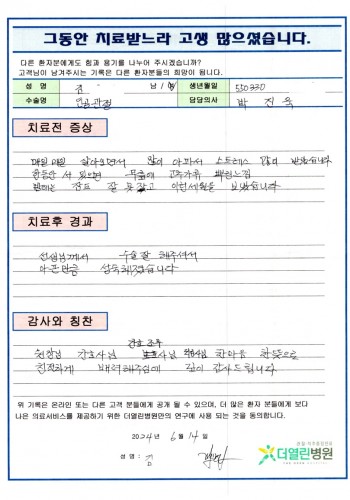 그동안 치료받느라 고생 많으셨습니다.
다른 환자분에게도 힘과 용기를 나누어 주시겠습니까?
고객님이 남겨주시는 기록은 다른 환자분들의 희망이 됩니다.
성 명 김 남 / 여 생년월일 550330
수술명 인공관절 담당의사 박진욱
치료전 증상
매일매일 살아오면서 많이 아파서 스트레스 많이 받았습니다
한동안 서 있으면 무릎에
밤에는 잠도 잘 못자고 이런세월을 보냈습니다
치료후 경과
선생님께서 수술 잘 해주셔서
아픈만큼 성숙해졌습니다
감사와 칭찬
간호 조무
원장님 간호사님 사님 한마음 한뜻으로
친절하게 배려해주심에 깊이 감사드립니다
위 기록은 온라인 또는 다른 고객 분들에게 공개 될 수 있으며, 더 많은 환자 분들에게 보다
나은 의료서비스를 제공하기 위한 더열린병원만의 연구에 사용 되는 것을 동의합니다.
2024 년 6 월 14 일
성 명 : 김
더열린병원